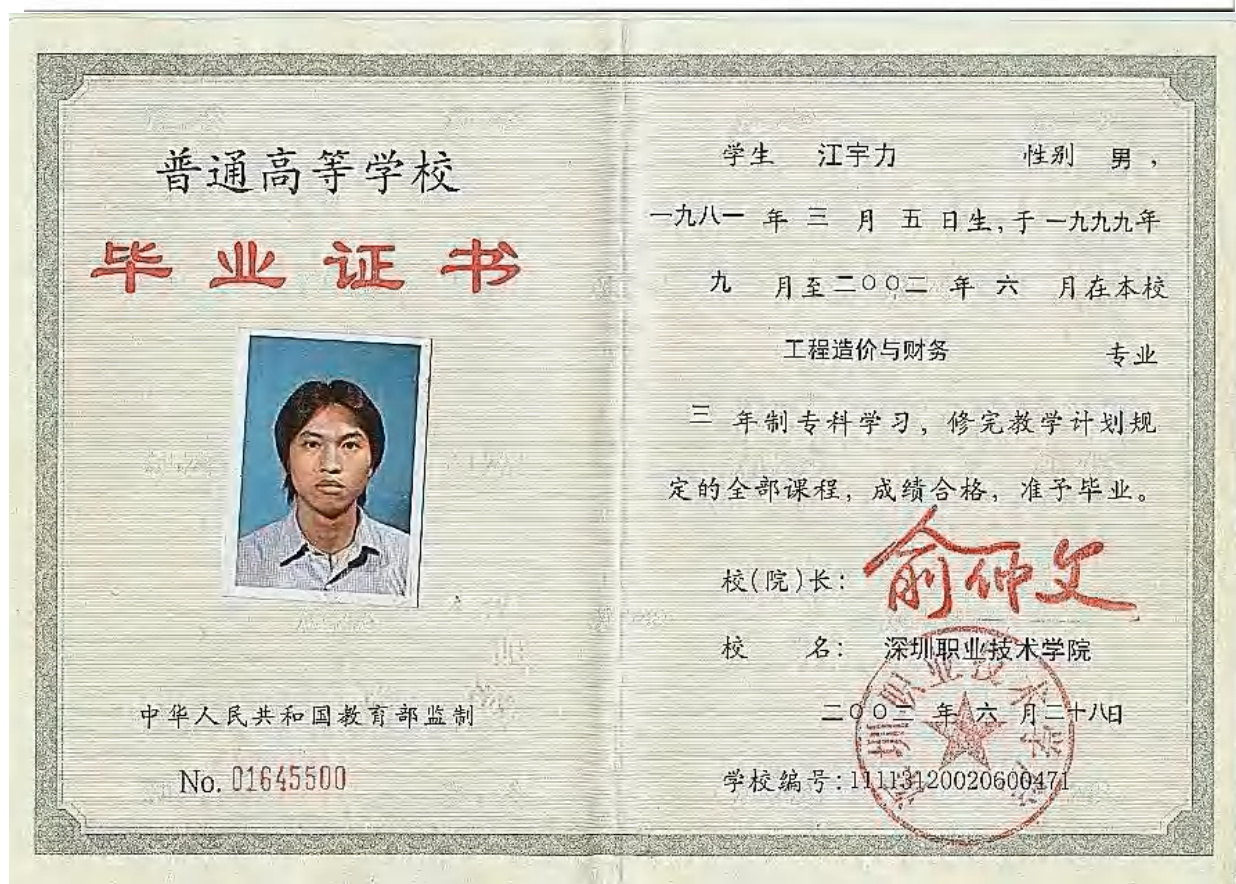 普通高等学校
毕业证书
中华人民共和国教育部监制
No. 01645500
学生 江宇力 性别 男，
一九八一 年 三 月 五 日生，于 一九九九年
九 月至 二〇〇二 年 六 月在本校
工程造价与财务 专业
三 年制专科学习，修完教学计划规
定的全部课程，成绩合格，准予毕业。
校(院)长： 俞仲文
校 名： 深圳职业技术学院
二〇〇二 年 六 月二十八日
学校编号:11113120020600471
深圳职业技术学院